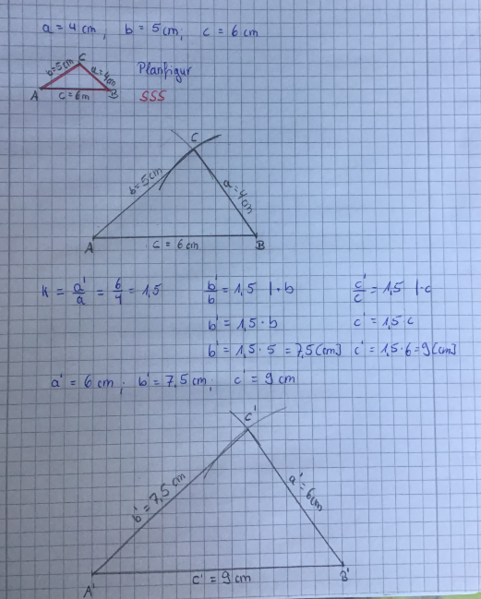 a = 4 cm, b = 5 cm, c = 6 cm
C
b=5cm
a=4cm
A
B
c = 6m
Planfigur
SSS
C
b=5cm
a=4cm
A
B
c = 6cm
K = a'/a = 6/4 = 1,5
b'/b = 1,5 |·b
c'/c = 1,5 |·c
b' = 1,5 · b
c' = 1,5 · c
b' = 1,5 · 5 = 7,5 [cm]
c' = 1,5 · 6 = 9 [cm]
a' = 6 cm; b' = 7,5 cm; c' = 9 cm
C'
b' = 7,5 cm
a' = 6cm
A'
B'
c' = 9 cm